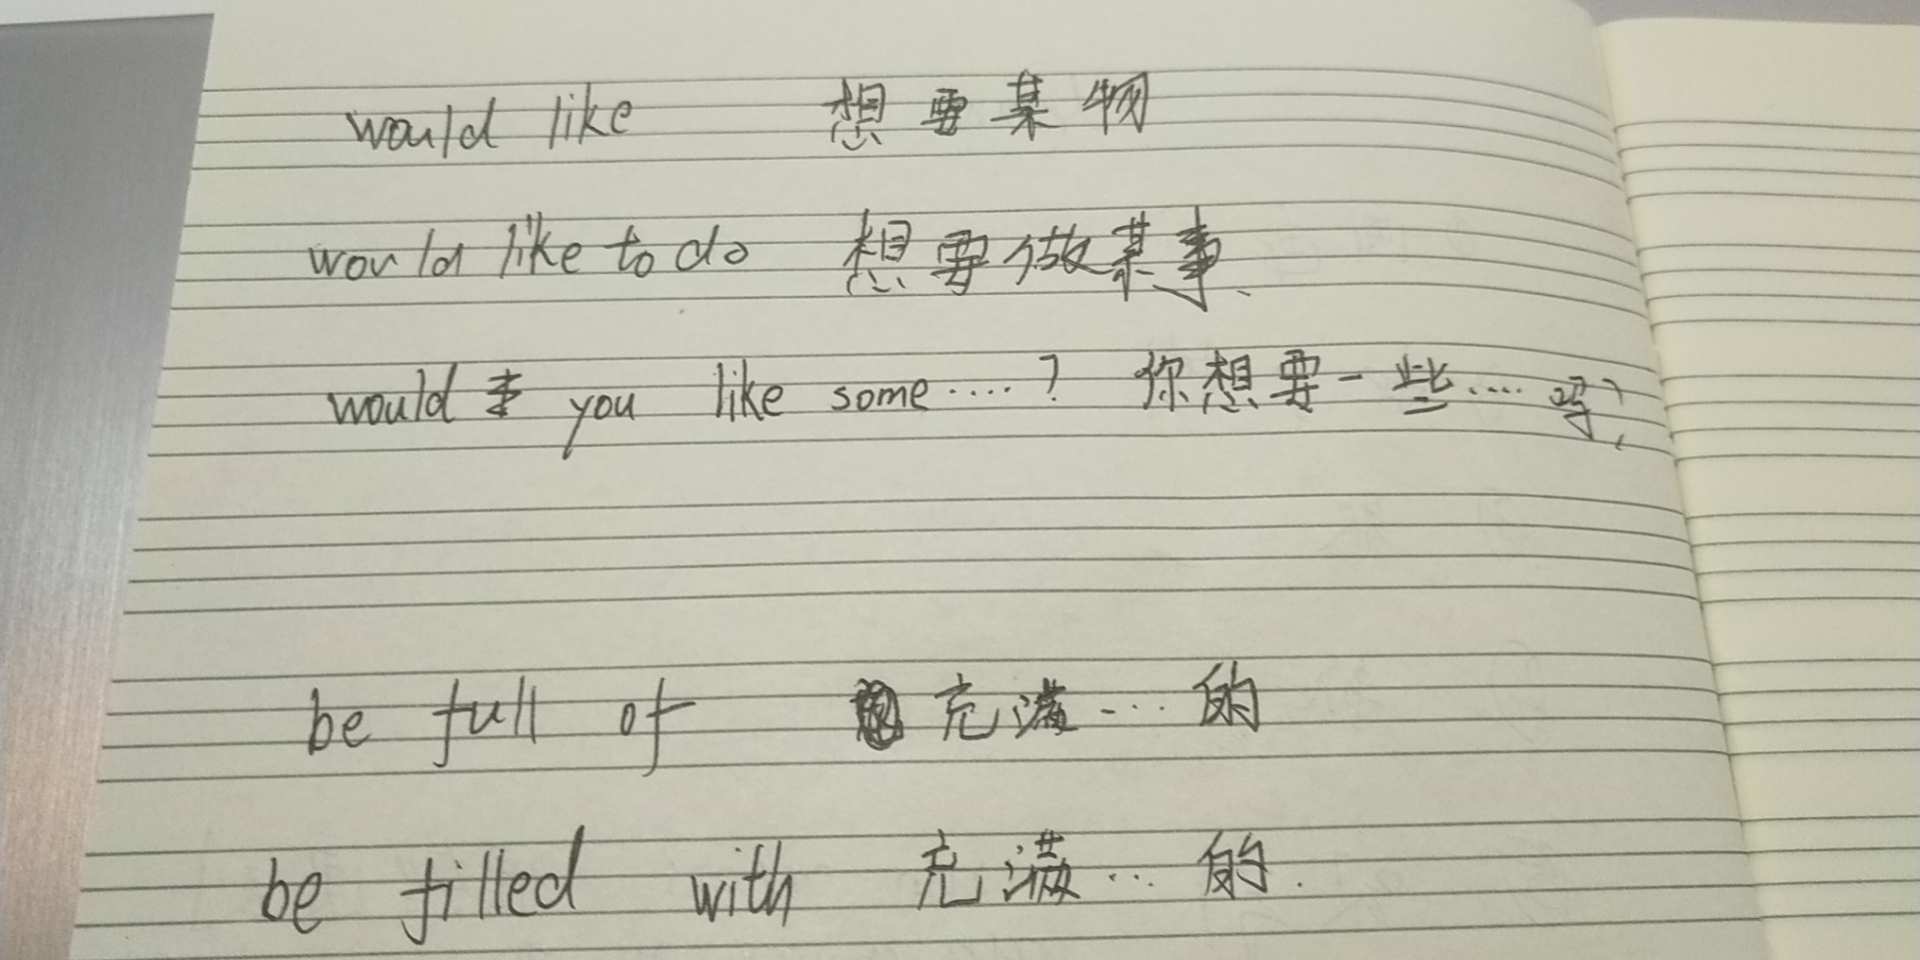 would like 想要某物
would like to do 想要做某事.
would you like some....? 你想要一些.... 吗?
be full of 充满... 的
be filled with 充满... 的.